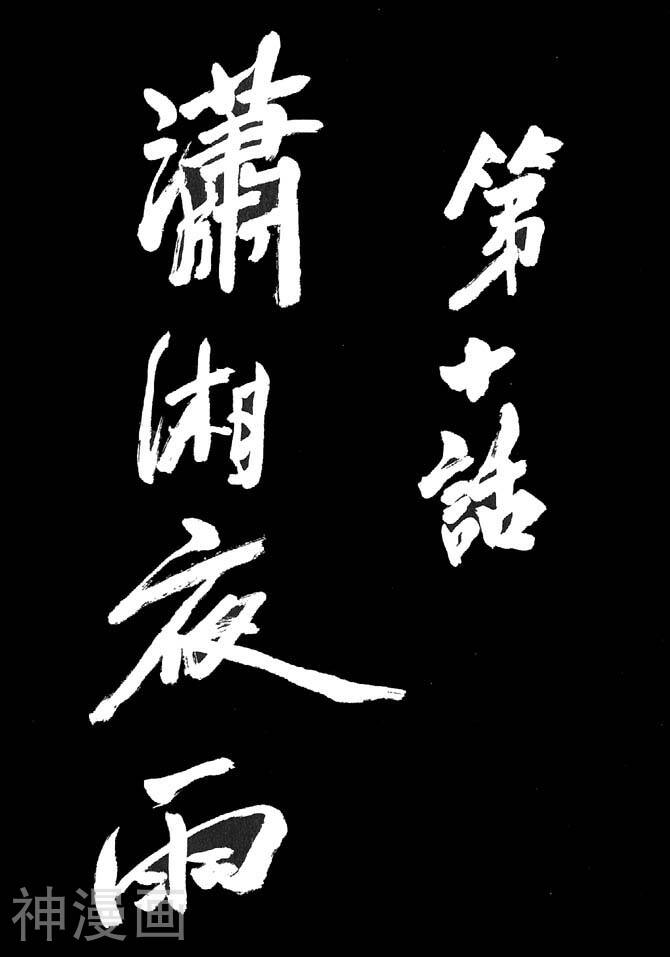 第十話
瀟湘夜雨
神漫画